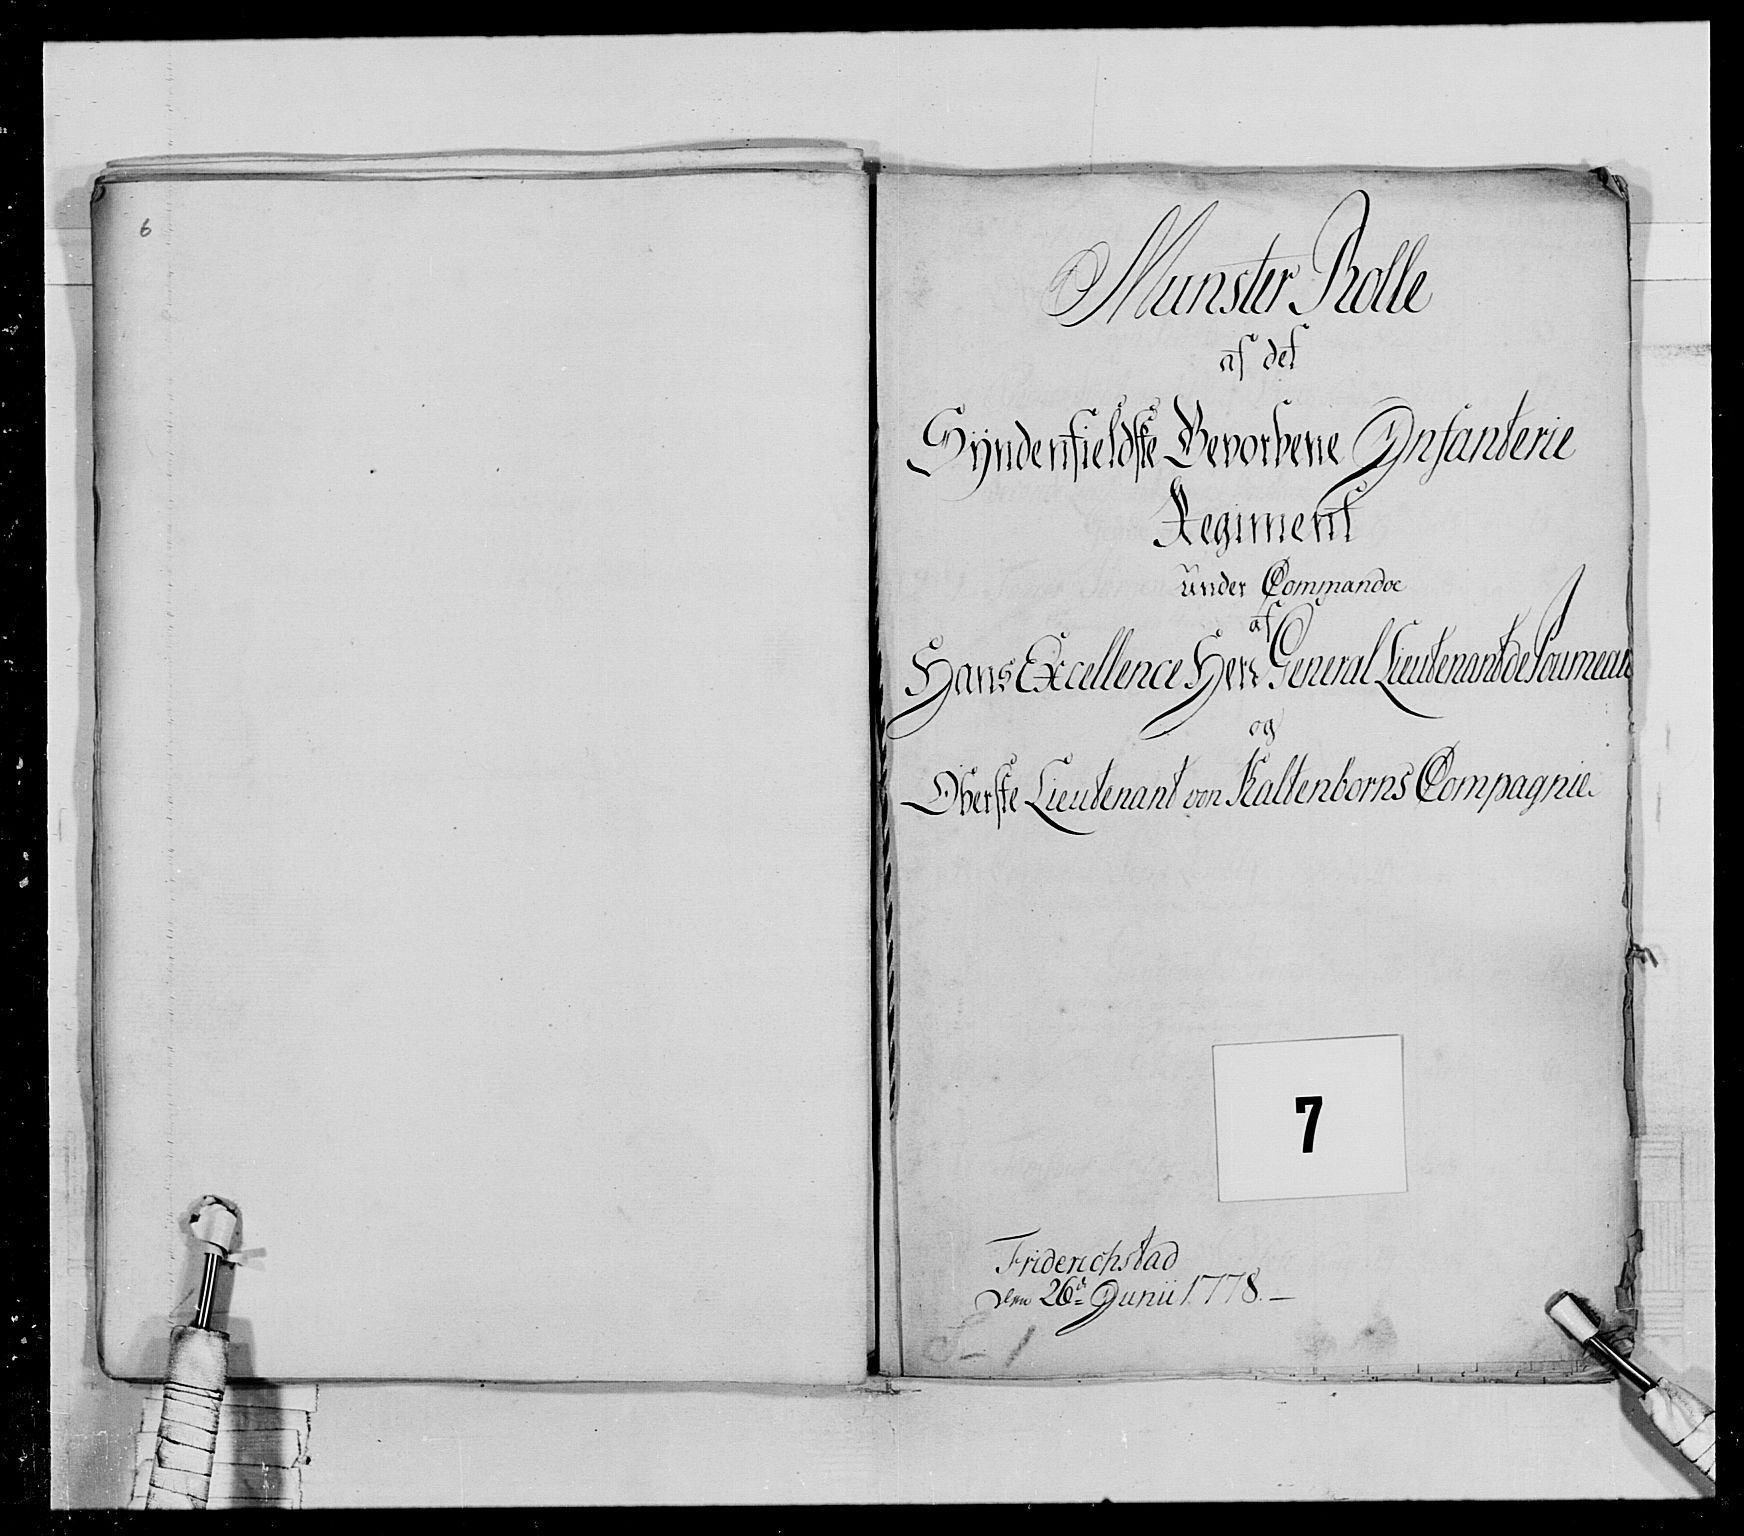 6
Munster Rolle
af det
Syndenfieldske Gevorbene Infanterie
Regiment
under Commandoe
af
Hans Excellence Herr General Lieutenant de Poumeau
og
Oberste Lieutenant von Kaltenborns Compagnie.
7
Friderichstad
den 26d Junii 1778. —